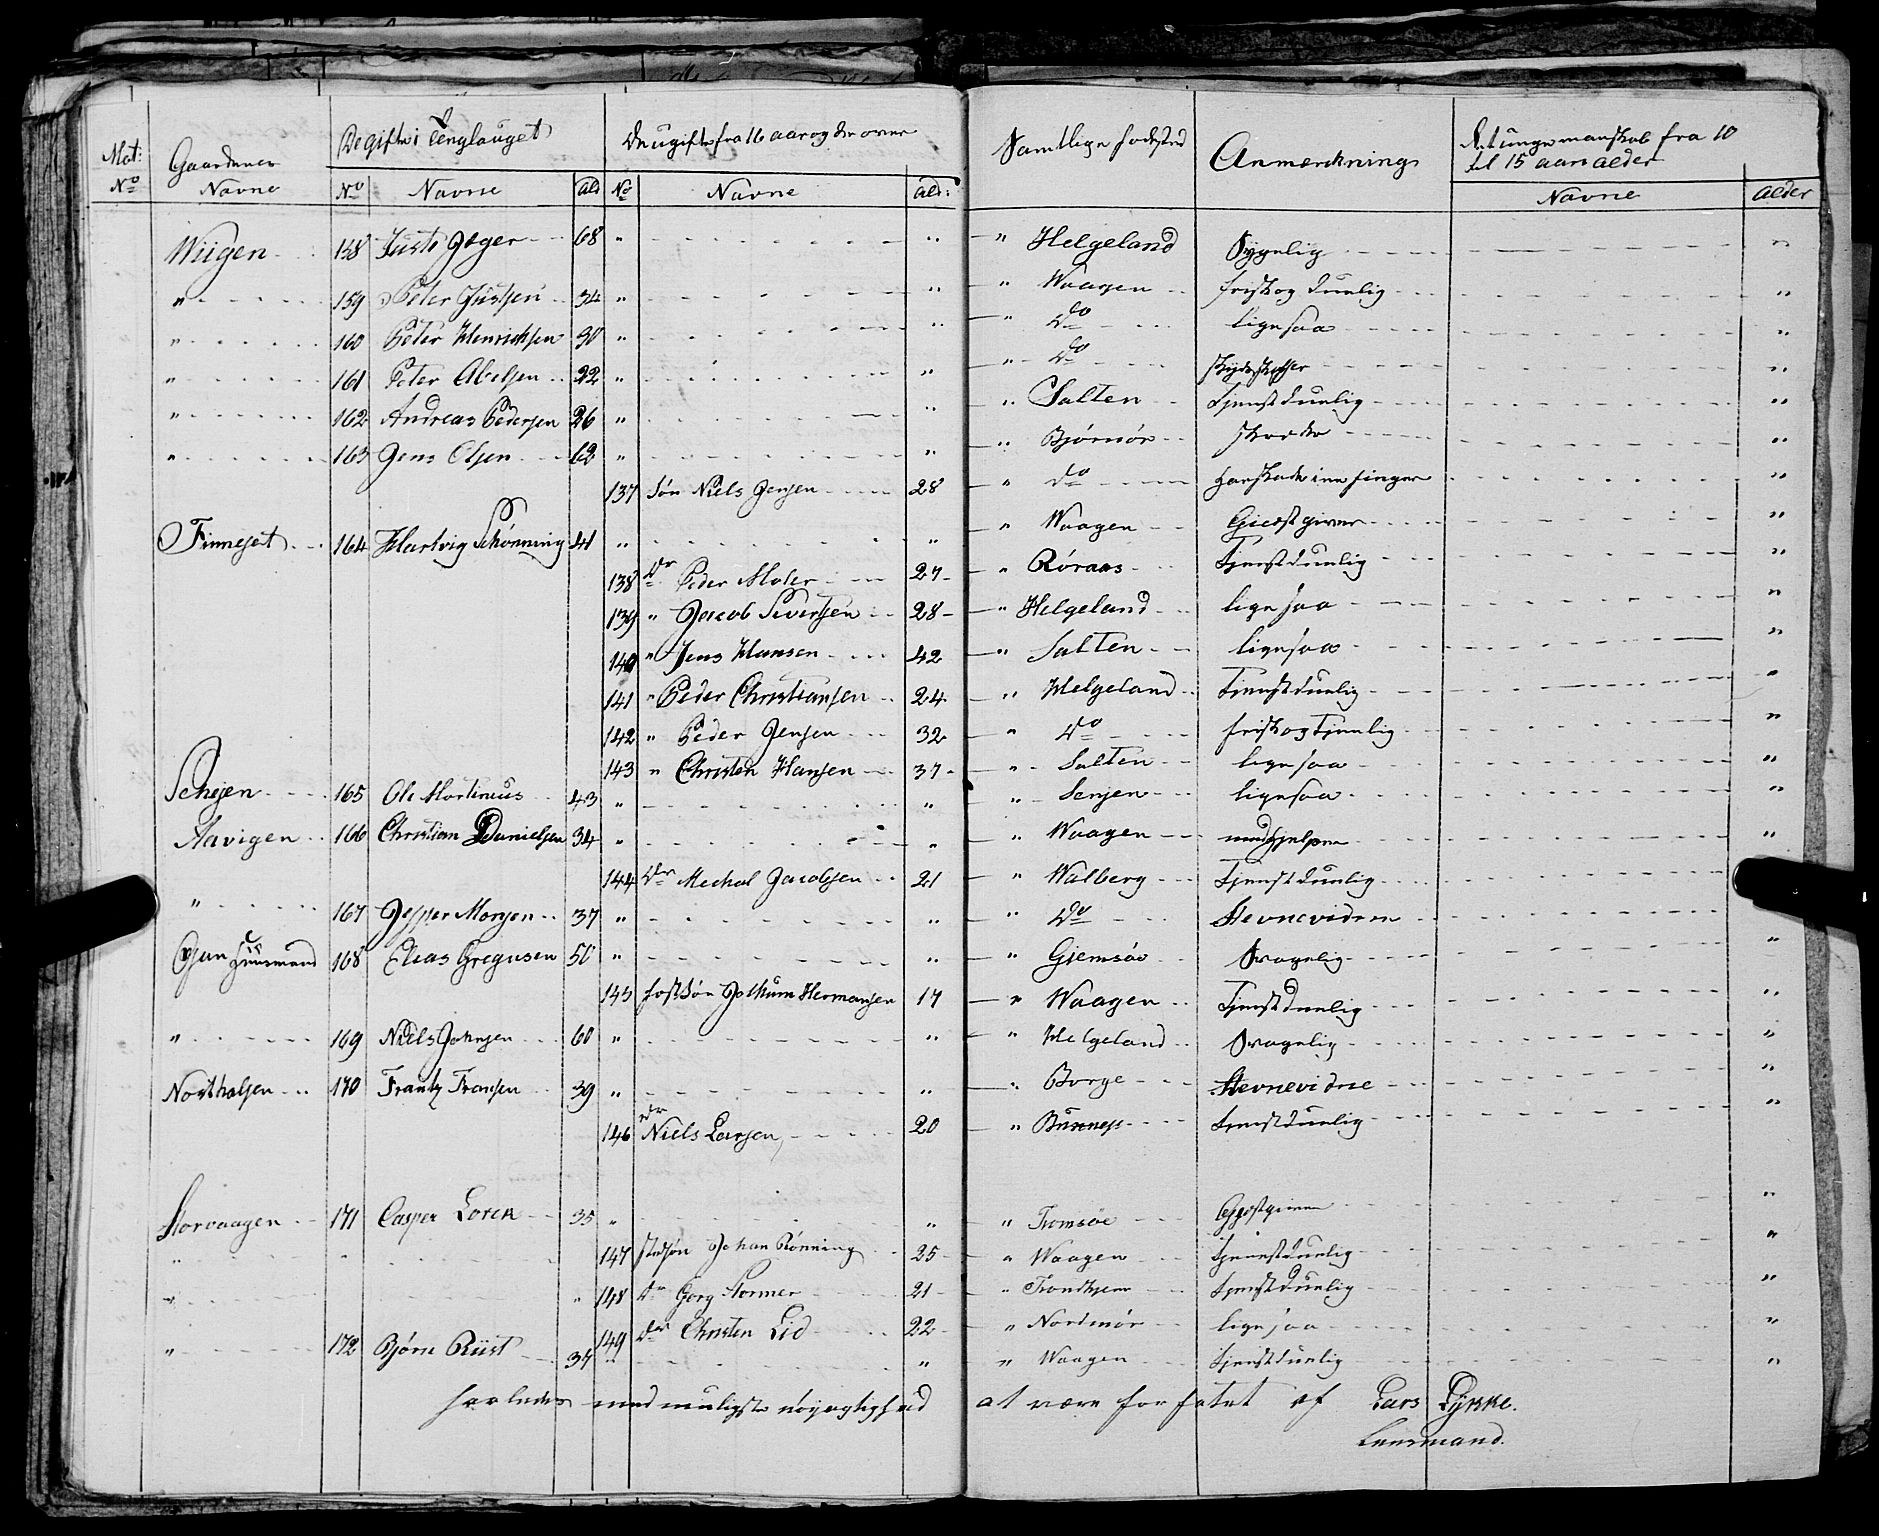 Mat: N° | Gaardenes Navne | De gifte i Lenglauget N° Navne Ald | De ugifte fra 16 aar og der over N° Navne Ald: | Samtlige fødested | Anmærkning | Det unge manskab fra 10 til 15 aars alder Navne Alder
Wiigen 158 Justs Jeger 68 " " " Helgeland Svagelig "
" 159 Peter Justsen 34 " " " Waagen frisk og duelig "
" 160 Peter Henrichsen 30 " " " do ligesaa "
" 161 Peter Abelsen 22 " " " do "
" 162 Andreas Pedersen 26 " " " Salten Tjenstduelig "
" 163 Jens Olsen 62 " " " Bjørnør "
137 Søn Niels Jensen 28 " do "
Finneset 164 Hartvig Schønning 41 " " " Waagen Giæstgiver "
138 dr Peder Moler 27 " Røraas Tjenstduelig "
139 " Jacob Sivertsen 28 " Helgeland ligesaa "
140 " Jens Hansen 42 " Salten ligesaa "
141 " Peder Christiansen 24 " Helgeland Tjenstduelig "
142 " Peder Jensen 32 " do frisk og Tjenlig "
143 " Christen Hansen 37 " Salten ligesaa "
165 Ole Mortinus 43 " " " Senjen ligesaa "
Aavigen 166 Christian Danielsen 34 " " " Waagen medhjelper "
144 dr Mechal Jacobsen 21 " Walberg Tjenstduelig "
" 167 Jesper Monsen 37 " " " do Stevnevidne
huusmand 168 Elias Gregusen 50 " " " Giemsøe Svagelig "
145 fostSøn Jochum Hermansen 17 " Waagen Tjenstduelig "
" 169 Niels Johnsen 60 " " " Helgeland Svagelig "
170 Frantz Fransen 39 " " " Borge Stevnevidne "
146 dr Niels Larsen 20 " Buxness Tjenstduelig "
Storvaagen 171 Casper Lorck 35 " " " Tromsøe Gjestgiver "
" 147 stedsøn Johan Rønning 25 " Waagen Tjenestduelig "
" " 148 dr Gorg Stormer 21 " Trondhjem Tjenstduelig "
149 dr Christen Lid 22 " Nordmør ligesaa "
" 172 Bjørn Riist 37 " " " Waagen Tjenstduelig "
saaledes med muligste nøyagtighed at være forfatet af Lars Lykke.
Lensmand.